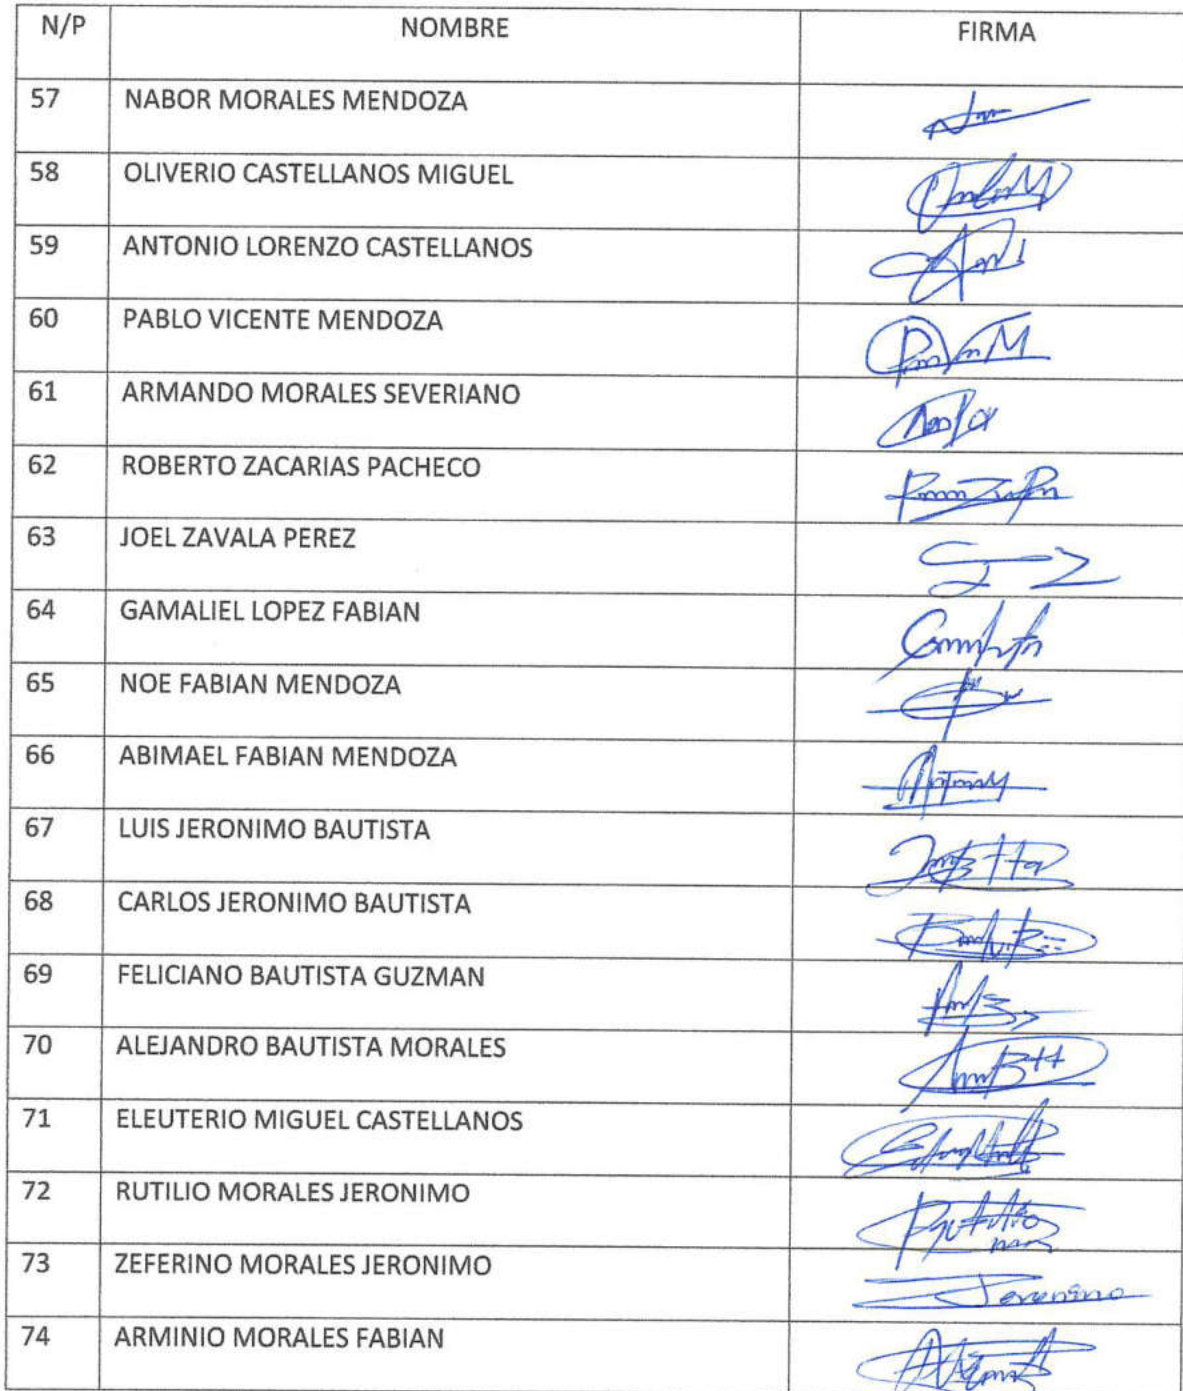 N/P NOMBRE FIRMA
57 NABOR MORALES MENDOZA
58 OLIVERIO CASTELLANOS MIGUEL
59 ANTONIO LORENZO CASTELLANOS
60 PABLO VICENTE MENDOZA
61 ARMANDO MORALES SEVERIANO
62 ROBERTO ZACARIAS PACHECO
63 JOEL ZAVALA PEREZ
64 GAMALIEL LOPEZ FABIAN
65 NOE FABIAN MENDOZA
66 ABIMAEL FABIAN MENDOZA
67 LUIS JERONIMO BAUTISTA
68 CARLOS JERONIMO BAUTISTA
69 FELICIANO BAUTISTA GUZMAN
70 ALEJANDRO BAUTISTA MORALES
71 ELEUTERIO MIGUEL CASTELLANOS
72 RUTILIO MORALES JERONIMO
73 ZEFERINO MORALES JERONIMO
74 ARMINIO MORALES FABIAN